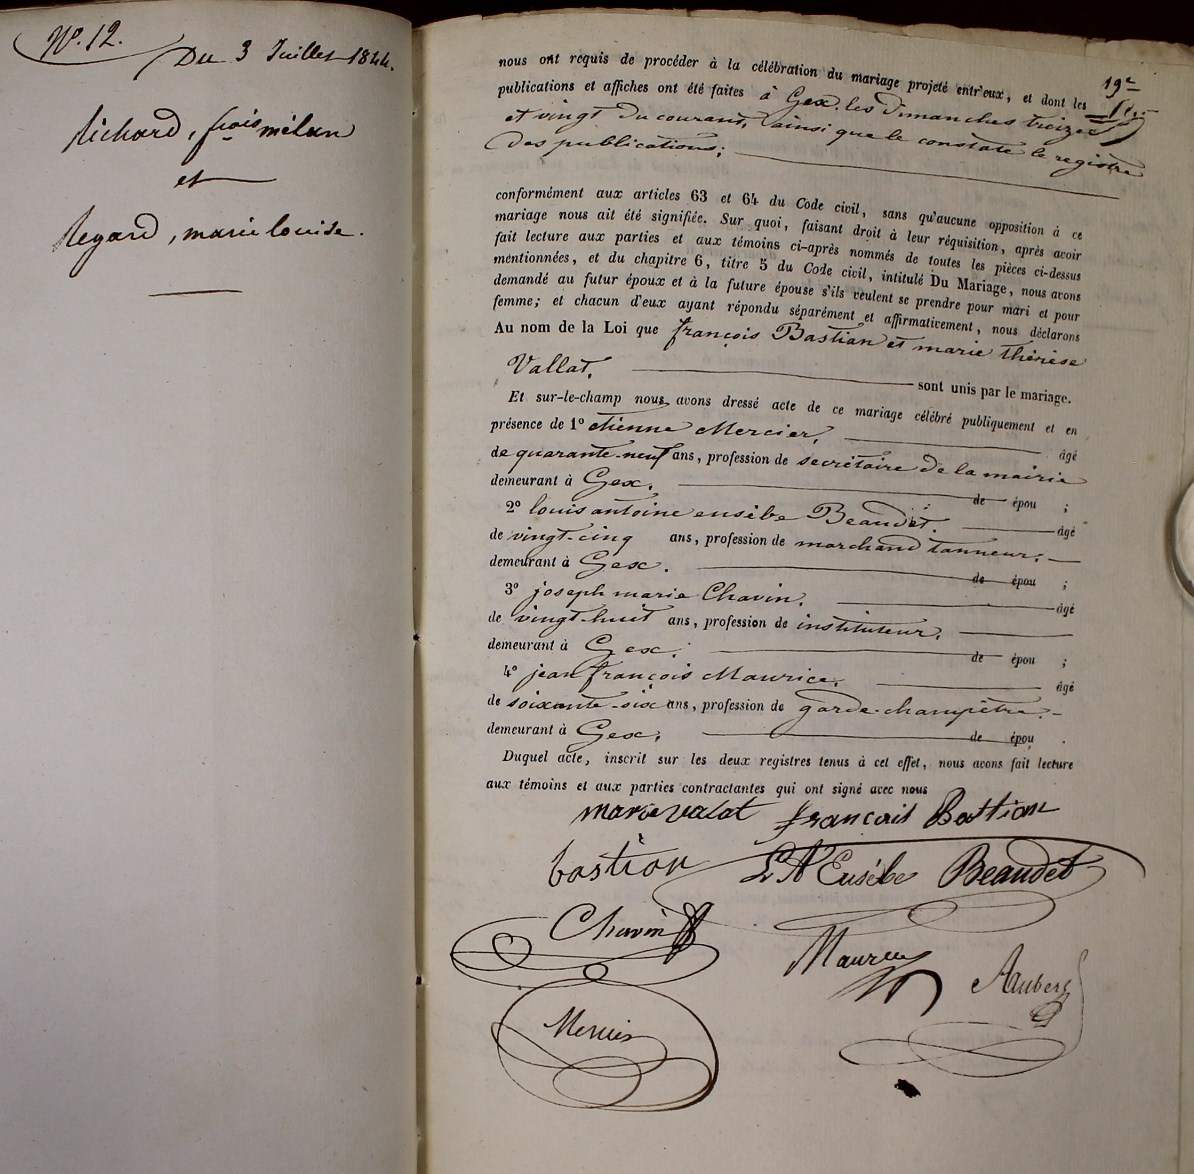 N°. 12.
Du 3 Juillet 1844.
Richard, frois mélan
et
Regard, marie louise.
19e
nous ont requis de procéder à la célébration du mariage projeté entr'eux, et dont les
publications et affiches ont été faites à Gex. les dimanches treize
et vingt du courant, ainsi que le constate le registre
des publications;
conformément aux articles 63 et 64 du Code civil, sans qu'aucune opposition à ce
mariage nous ait été signifiée. Sur quoi, faisant droit à leur réquisition, après avoir
fait lecture aux parties et aux témoins ci-après nommés de toutes les pièces ci-dessus
mentionnées, et du chapitre 6, titre 5 du Code civil, intitulé Du Mariage, nous avons
demandé au futur époux et à la future épouse s'ils veulent se prendre pour mari et pour
femme; et chacun d'eux ayant répondu séparément et affirmativement, nous déclarons
Au nom de la Loi que françois Bastian et marie thérèse
Vallat. sont unis par le mariage.
Et sur-le-champ nous avons dressé acte de ce mariage célébré publiquement et en
présence de 1° etienne Mercier, âgé
de quarante-neuf ans, profession de secrétaire de la mairie
demeurant à Gex. de épou ;
2° louis antoine eusèbe Beaudet. âgé
de vingt-cinq ans, profession de marchand tanneur.
demeurant à Gex. de épou ;
3° joseph marie Chavin. âgé
de vingt-huit ans, profession de instituteur,
demeurant à Gex. de épou ;
4° jean françois Maurice. âgé
de soixante-six ans, profession de garde-champêtre.
demeurant à Gex, de épou .
Duquel acte, inscrit sur les deux registres tenus à cet effet, nous avons fait lecture
aux témoins et aux parties contractantes qui ont signé avec nous
marie valat françois Bastian
bastian L A Eusèbe Beaudet
Chavin
Maurice Auberg
Mercier